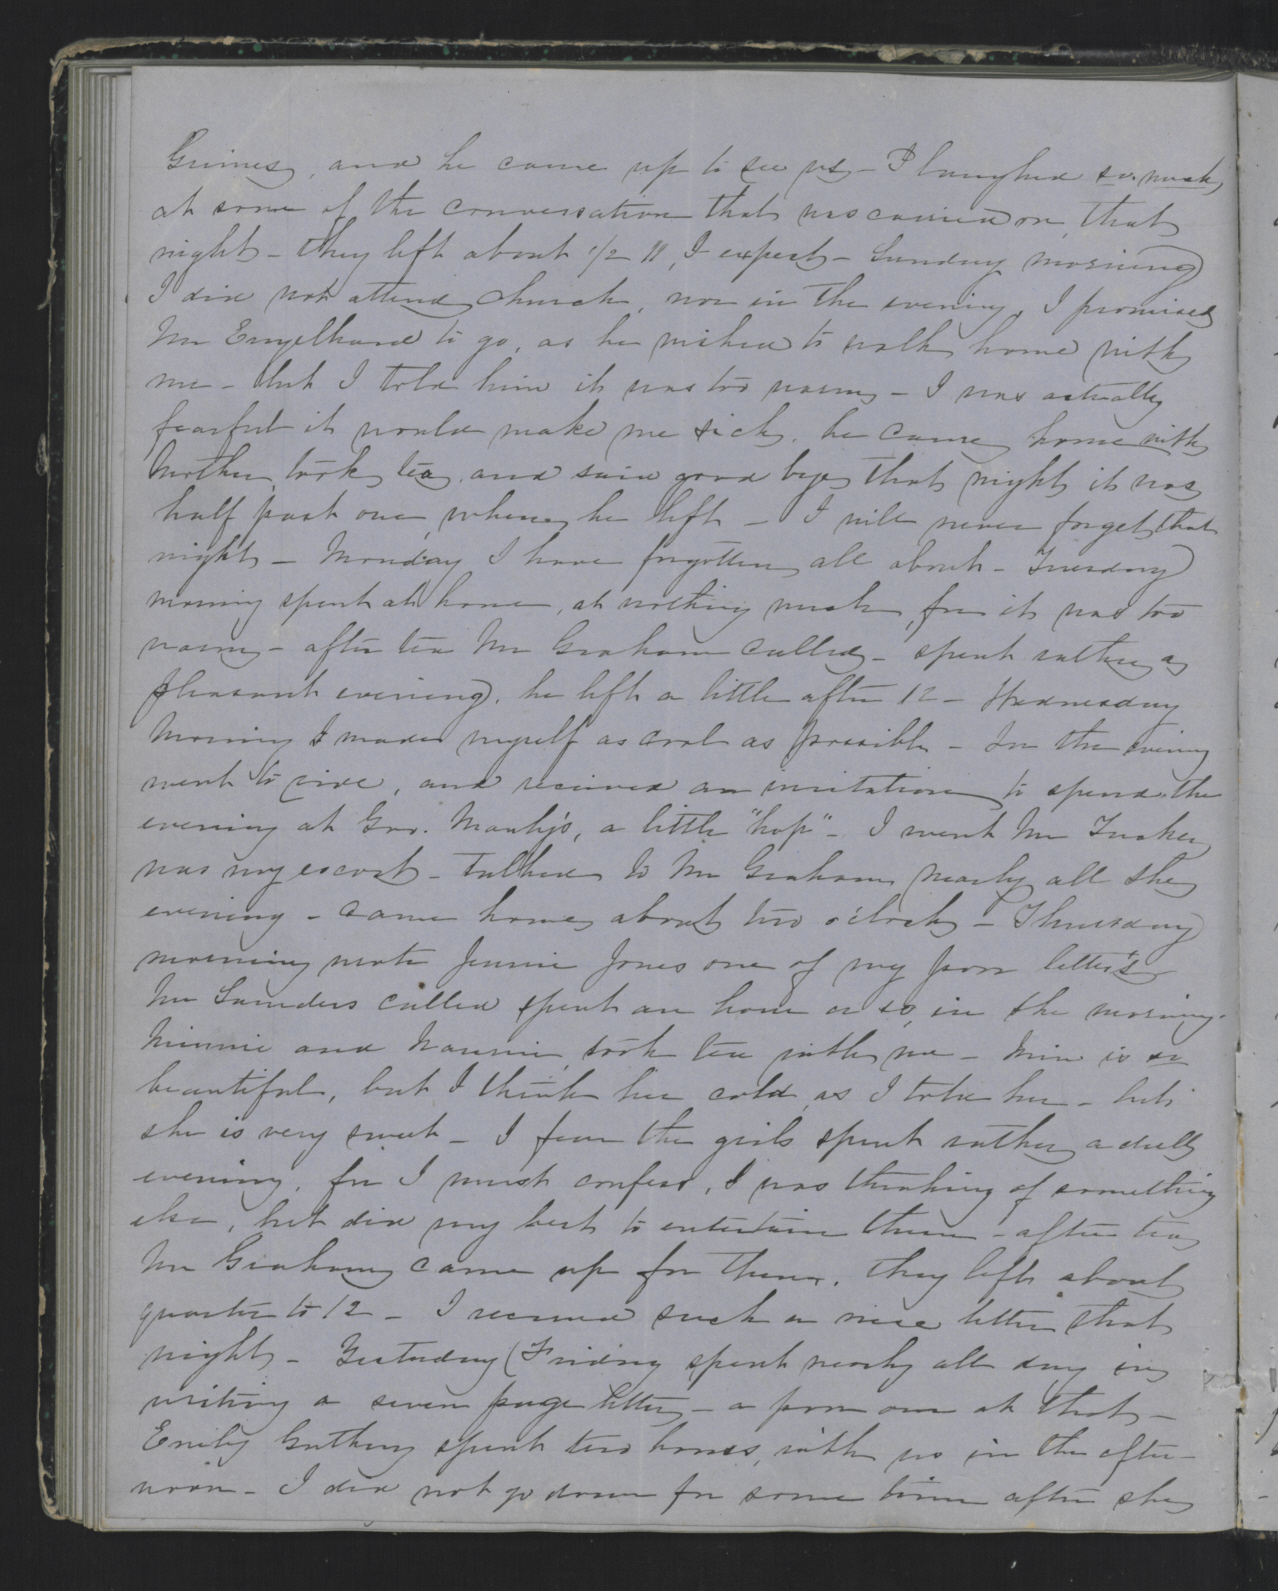 Grimes, and he came up to see us - I laughed so much
at some of the conversation that was carried on, that
night - they left about 1/2 11, I expect - Sunday morning
I did not attend church, nor in the evening, I promised
Mr Engelhard to go, as he wished to walk home with
me - but I told him it was too warm - I was actually
fearful it would make me sick. he came home with
Mother, took tea, and said good bye, that night it was
half past one, when he left - I will never forget that
night - Monday I have forgotten all about - Tuesday
morning spent at home, at nothing much, for it was too
warm - after tea Mr Graham called - spent rather a
pleasant evening, he left a little after 12 - Wednesday
Morning I made myself as cool as possible - In the evening
went to ride, and received an invitation to spend the
evening at Gov. Manly's, a little "hop" - I went Mr Tucker
was my escort - talked to Mr Graham nearly all the
evening - came home about two o'clock - Thursday
morning wrote Jennie Jones one of my poor letters
Mr Saunders called spent an hour or so, in the morning.
Minnie and Nannie, took tea with me - Min is so
beautiful, but I think her cold, as I told her - but
she is very sweet - I fear the girls spent rather a dull
evening, for I must confess, I was thinking of something
else, but did my best to entertain them - after tea
Mr Graham came up for them, they left about
quarter to 12 - I received such a nice letter that
night - Yesterday (Friday spent nearly all day in
writing a seven page letter - a poor one at that -
Emily Guthrey spent two hours, with us in the after-
noon - I did not go down for some time after she